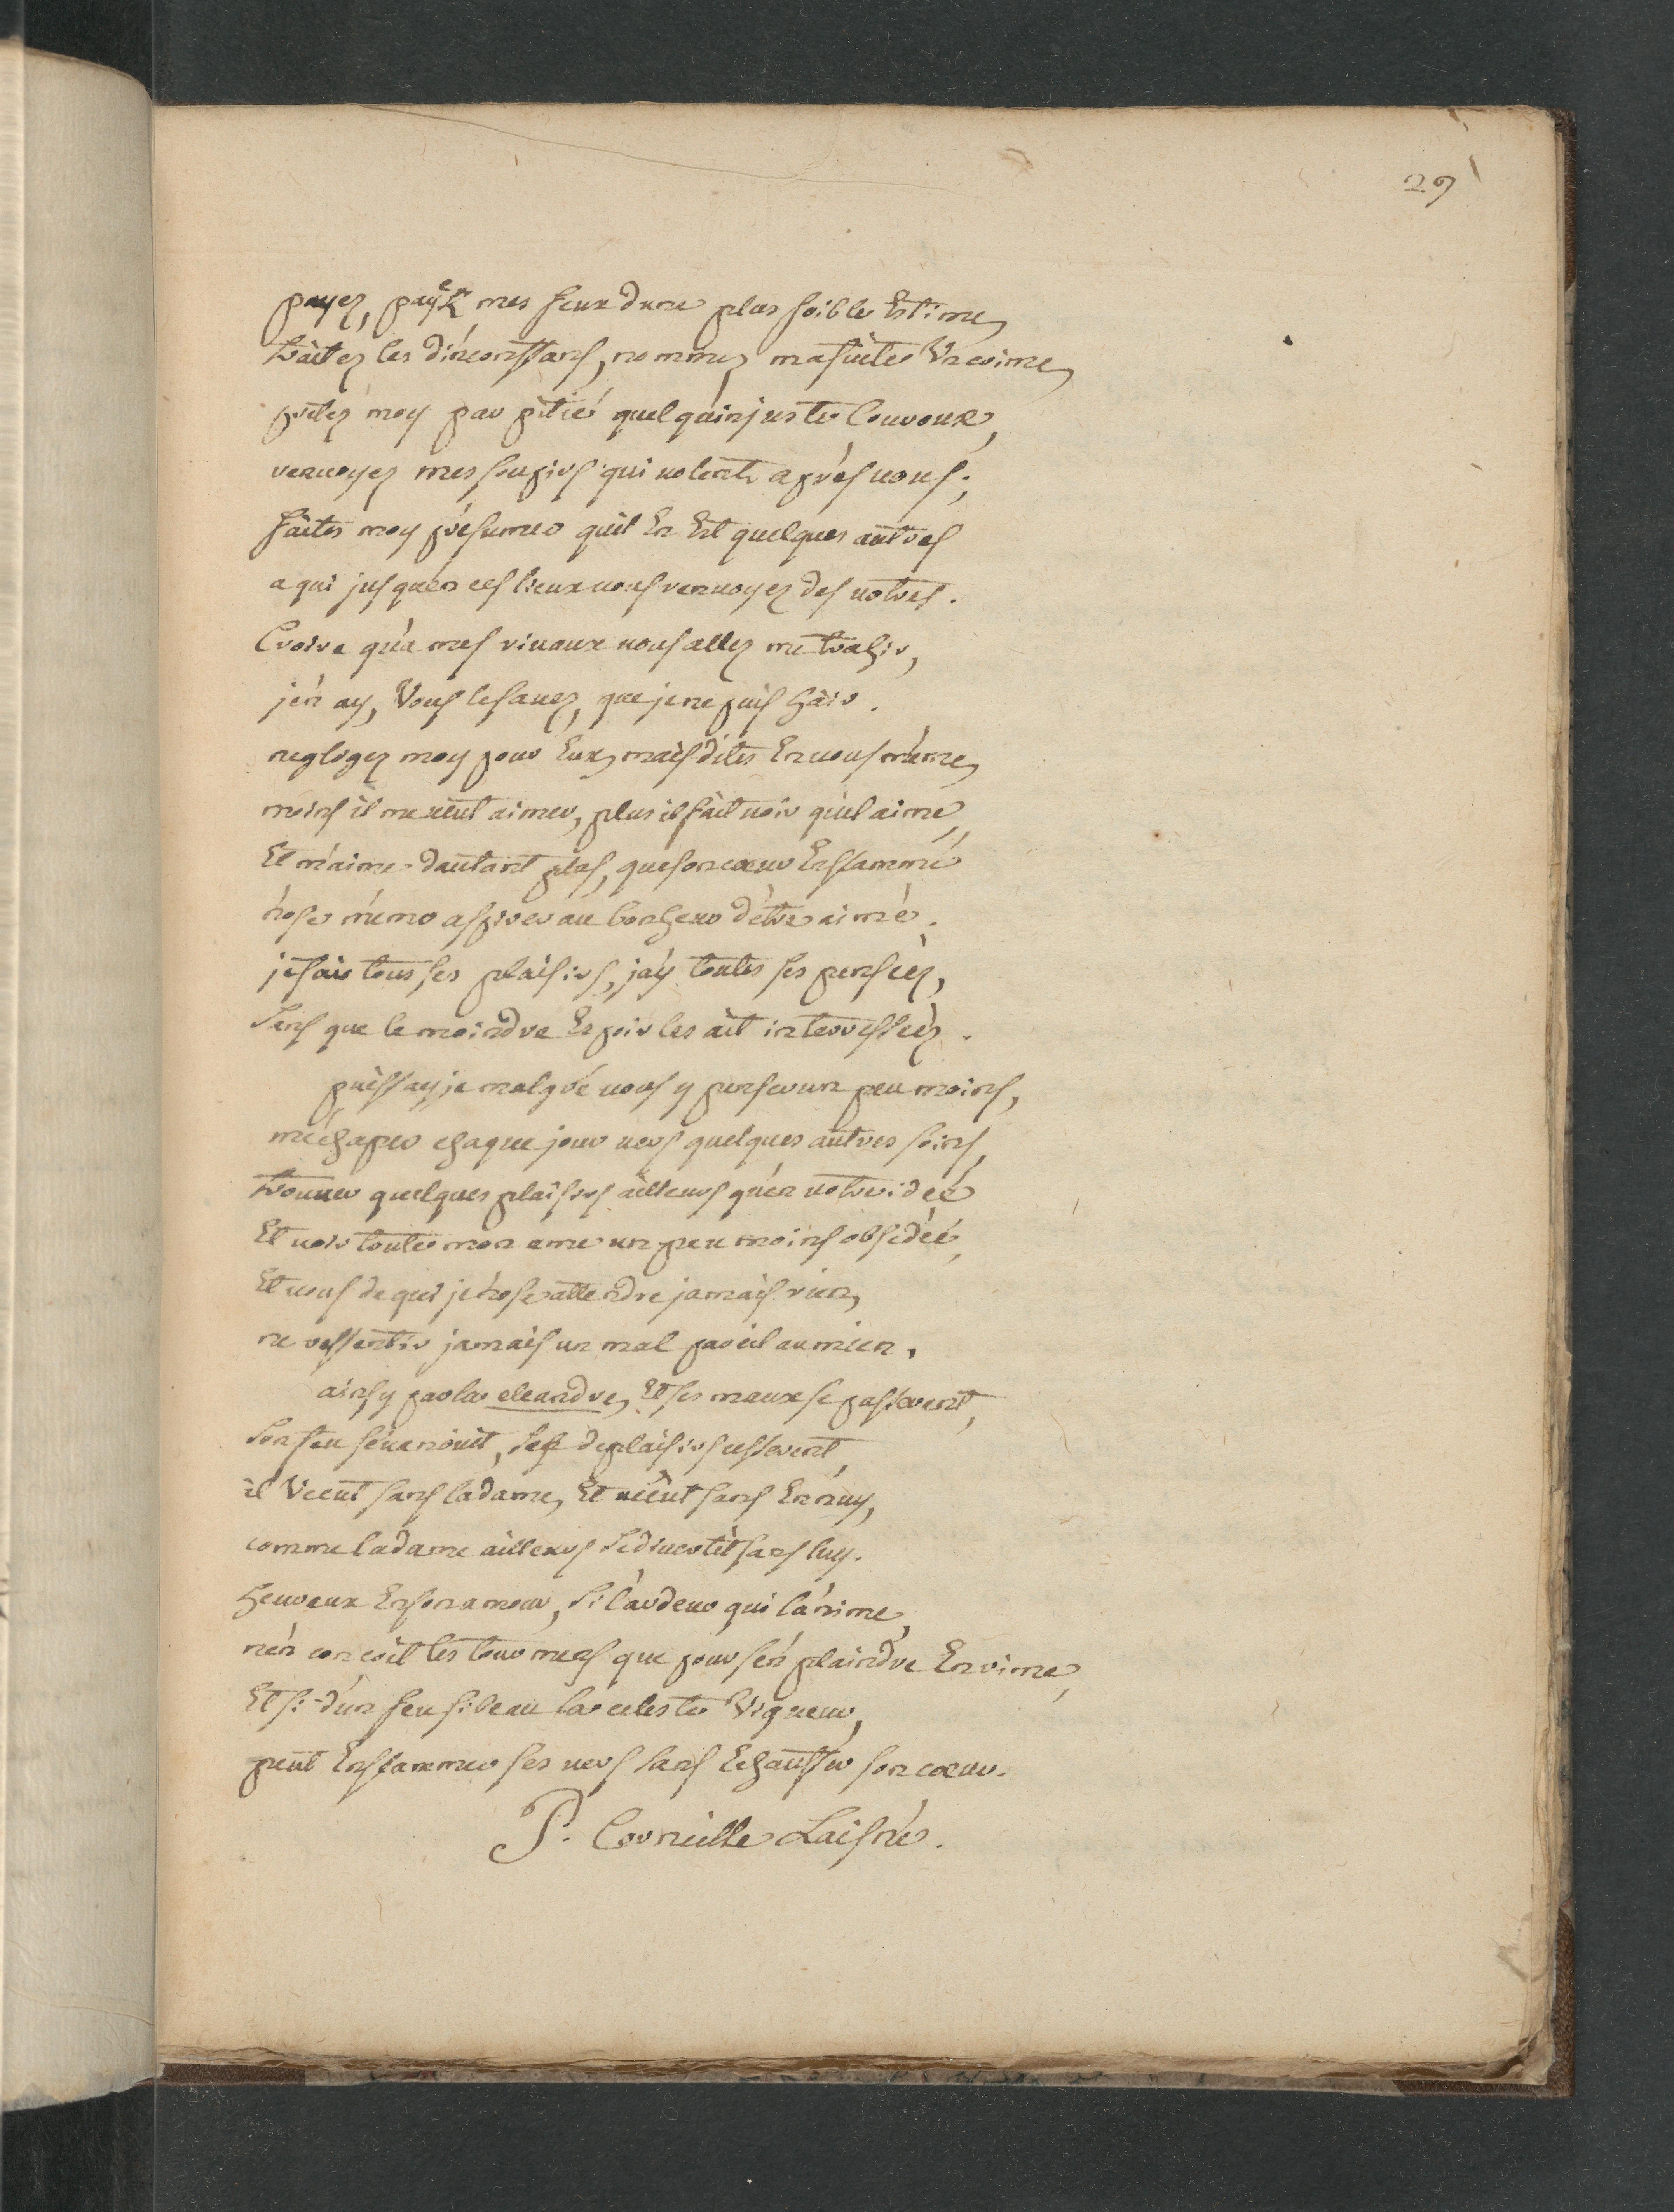 29
payez, payez mes feux dune plus foible Estime,
traitez les d'inconstans, nommez ma fuite Un crime,
prétez moy par pitié quelqu'injuste Couroux,
renuoyez mes soupirs qui uolent aprés uous;
faites moy présumer qu'il En Est quelques autres
a qui jusqu'en ces lieux uous renuoyez des uotres.
Croire qu'a mes riuaux uous allez me trahir,
j'en ay, Vous le sauez, que je ne puis haïr.
negligez moy pour Eux, mais dites En uous méme,
moins il me ueut aimer, plus il fait uoir qu'il aime,
Et m'aime dautant plus, que son coeur Enflammé
n'ose méme aspirer au bonheur d'étre aimé.
je fais tous ses plaisirs, j'ay toutes ses penseéz,
Sans que le moindre Espoir les ait interresseéz.
puissay je malgré uous y penser un peu moins,
m'échaper chaque jour uers quelques autres soins,
trouuer quelques plaisirs ailleurs qu'en uotre ideé
Et uoir toute mon ame un peu moins obsedeé,
Et uous de qui je n'ose attendre jamais rien,
ne ressentir jamais un mal pareil au mien.
ainsy parla cleandre, Et ses maux se passerent,
Son feu s'éuanoüit, Ses deplaisirs cesserent,
il Vecut sans la dame, Et uécut sans Ennuy,
comme la dame ailleurs Se diuertit sans luy.
heureux En son amour, Si l'ardeur qui l'anime,
n'en conçoit les tourmens que pour s'en plaindre En rime,
Et si d'un feu si beau la celeste Vigueur,
peut Enflammer ses uers sans Echauffer son coeur.
P. Corneille Laisné.